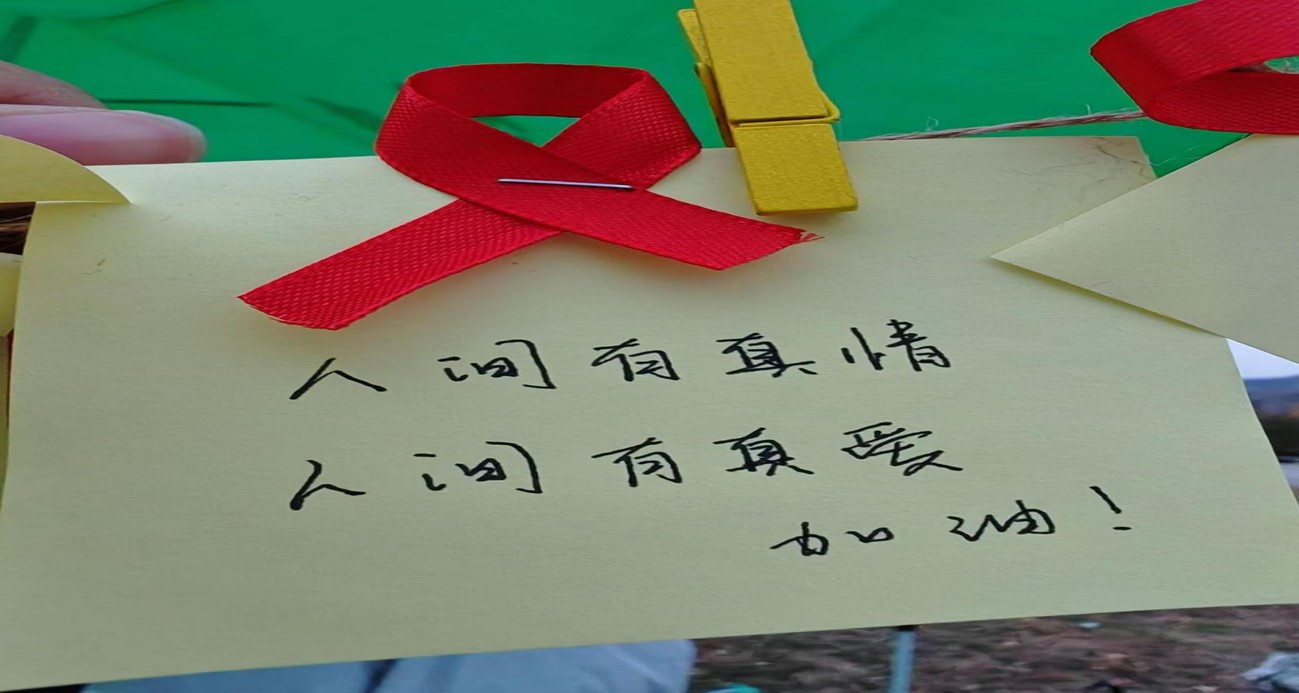 人间有真情
人间有真爱
加油!